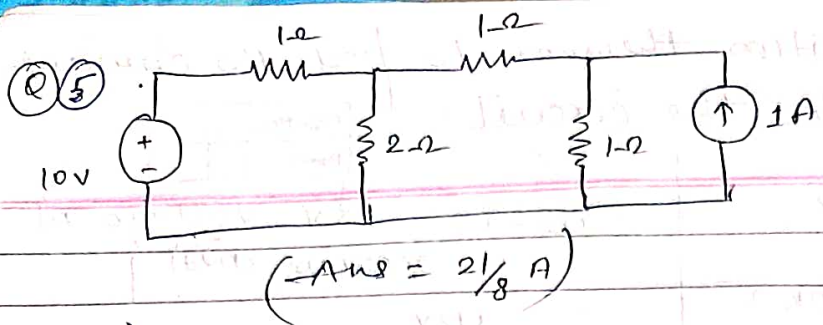 1Ω
1Ω
Q5
10V
+
-
2Ω
1Ω
↑
1A
(Ans = 21/8 A)